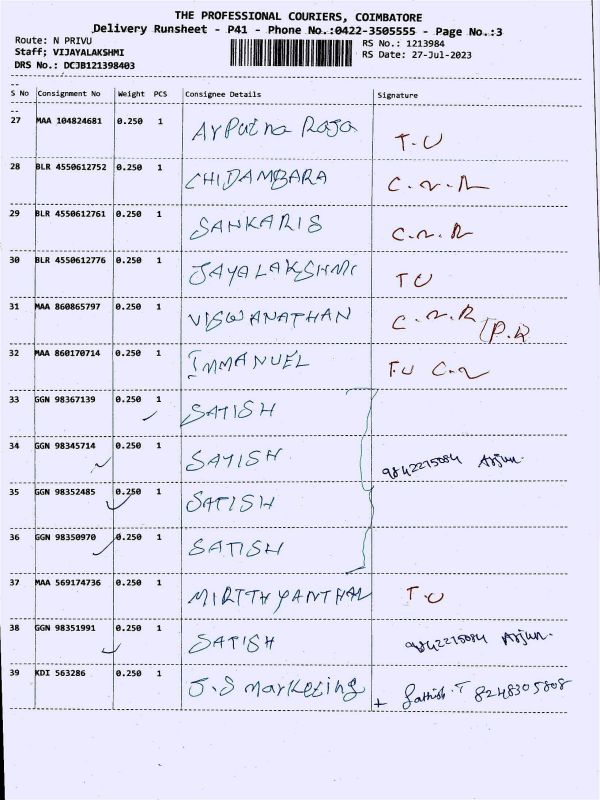 THE PROFESSIONAL COURIERS, COIMBATORE
Delivery Runsheet - P41 - Phone No.:0422-3505555 - Page No.:3
Route: N PRIVU RS No.: 1213984
Staff; VIJAYALAKSHMI RS Date: 27-Jul-2023
DRS No.: DCJB121398403
S No Consignment No Weight PCS Consignee Details Signature
27 MAA 104824681 0.250 1 Arputha Raja T.U
28 BLR 4550612752 0.250 1 CHIDAMBARA C.N.R
29 BLR 4550612761 0.250 1 SANKARIS C.N.R
30 BLR 4550612776 0.250 1 JAYALAKSHMI TU
31 MAA 860865797 0.250 1 VISWANATHAN C.N.R P.R
32 MAA 860170714 0.250 1 IMMANUEL T.U C.N
33 GGN 98367139 0.250 1 SATISH
34 GGN 98345714 0.250 1 SATISH 9842275084 Arjun.
35 GGN 98352485 0.250 1 SATISH
36 GGN 98350970 0.250 1 SATISH
37 MAA 569174736 0.250 1 MIRTTHYANTHAL T.U
38 GGN 98351991 0.250 1 SATISH 9842275084 Arjun.
39 KDI 563286 0.250 1 J.S Marketing + Sathish.T 8248305808